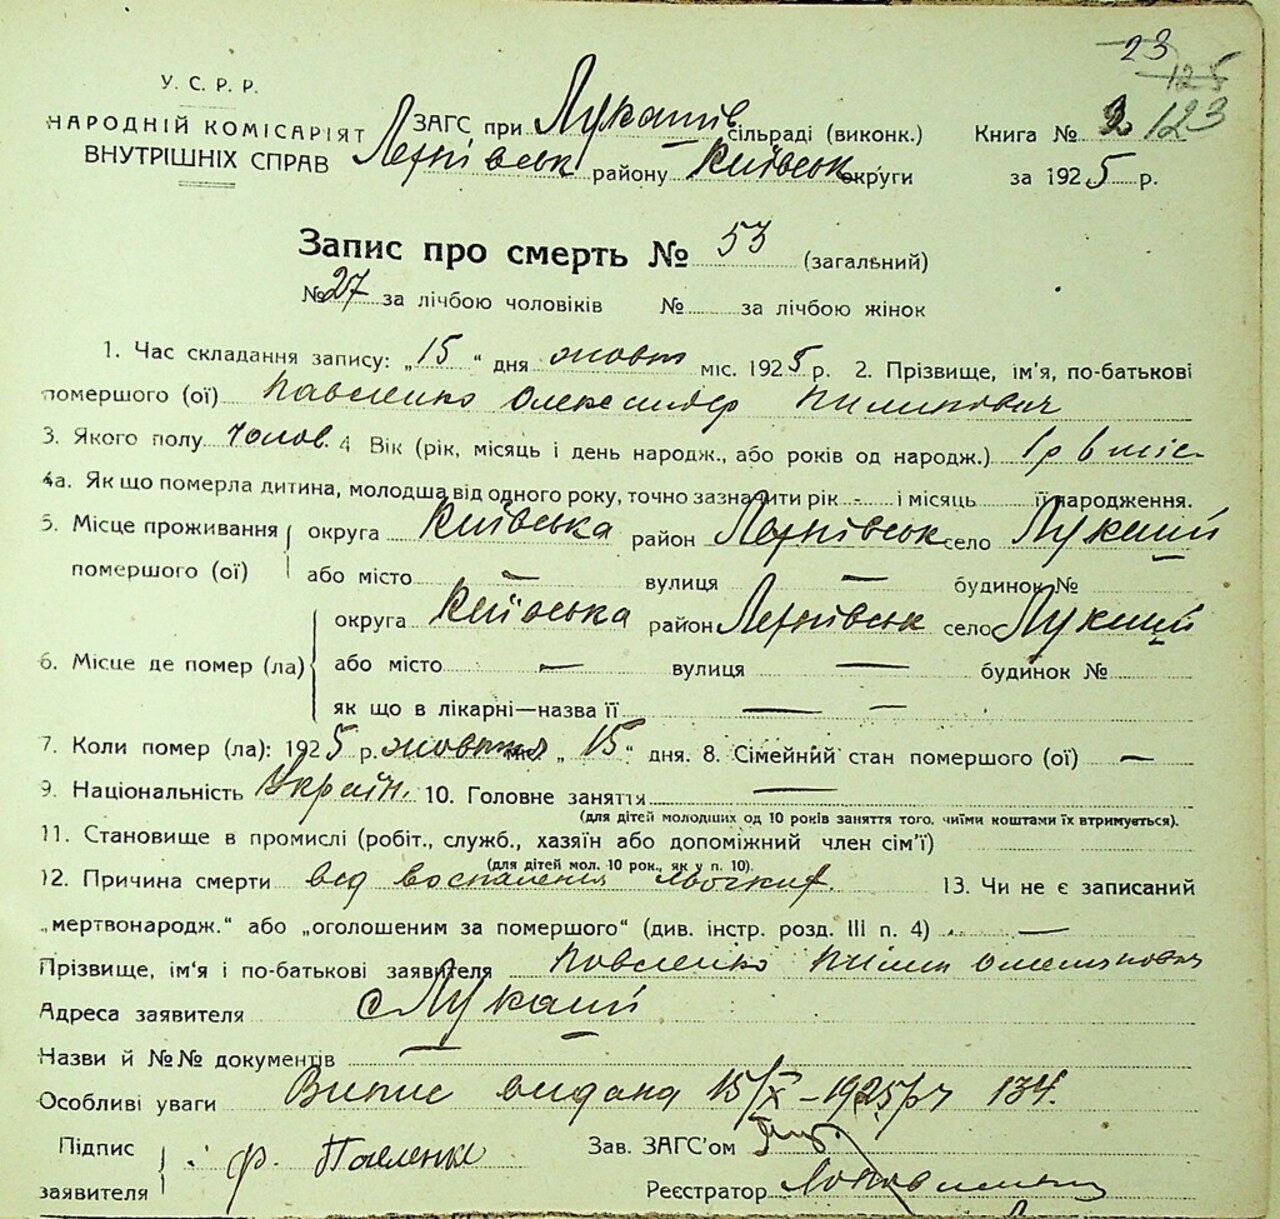 23
125
У. С. Р. Р.
НАРОДНІЙ КОМІСАРІЯТ
ВНУТРІШНІХ СПРАВ
ЗАГС при Лукашів сільраді (виконк.)
Книга № 2 123
району Київськ округи
за 1925 р.
Запис про смерть № 53 (загальний)
№ 27 за лічбою чоловіків № за лічбою жінок
1. Час складання запису: „15“ дня жовт міс. 1925 р. 2. Прізвище, ім'я, по-батькові
помершого (ої) Павленко Олександер Пилипович
3. Якого полу чолов. 4 Вік (рік, місяць і день народж., або років од народж.) 1 р 6 міс
4а. Як що померла дитина, молодша від одного року, точно зазначити рік - і місяць її народження.
5. Місце проживання помершого (ої) округа Київська район село Лукаші
або місто — вулиця — будинок №
6. Місце де помер (ла) округа Київська район село Лукаші
або місто — вулиця — будинок №
як що в лікарні—назва її — —
7. Коли помер (ла): 1925 р. жовтня міс. „15“ дня. 8. Сімейний стан помершого (ої) —
9. Національність Україн. 10. Головне заняття —
(для дітей молодших од 10 років заняття того, чиїми коштами їх втримується).
11. Становище в промислі (робіт., служб., хазяїн або допоміжний член сім'ї)
(для дітей мол. 10 рок., як у п. 10).
12. Причина смерти від воспаления 13. Чи не є записаний
„мертвонародж.“ або „оголошеним за помершого“ (див. інстр. розд. III п. 4) —
Прізвище, ім'я і по-батькові заявителя Павленко Пилип Омелянович
Адреса заявителя с Лукаші
Назви й №№ документів —
Особливі уваги Випис видана 15/X – 1925 р ч 134.
Підпис заявителя Ф. Павленко
Зав. ЗАГС'ом
Реєстратор